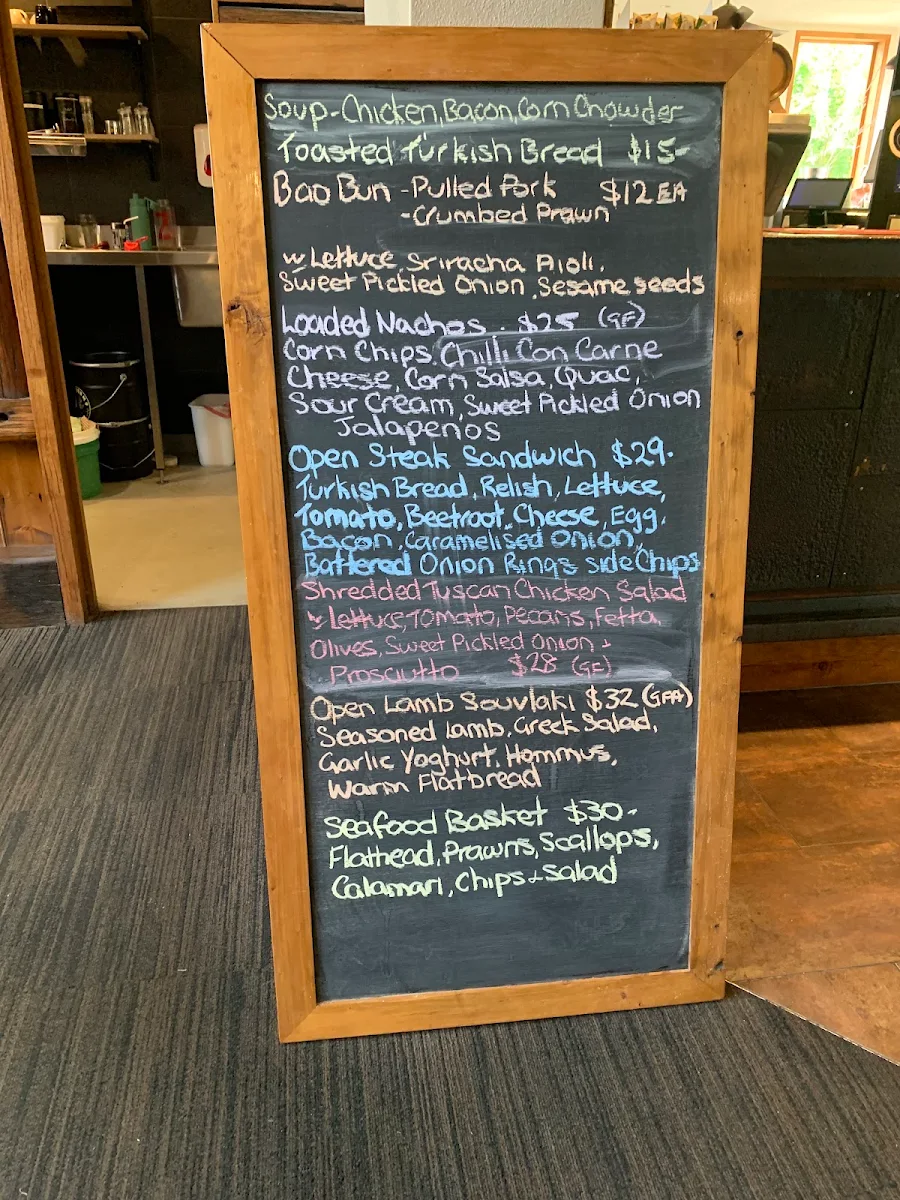 Soup-Chicken, Bacon, Corn Chowder
Toasted Turkish Bread $15-
Bao Bun -Pulled Pork $12 EA
-Crumbed Prawn
w Lettuce, Sriracha Aioli,
Sweet Pickled Onion, Sesame seeds
Loaded Nachos - $25 (GF)
Corn Chips, Chilli Con Carne
Cheese, Corn Salsa, Quac,
Sour Cream, Sweet Pickled Onion
Jalapenos
Open Steak Sandwich $29-
Turkish Bread, Relish, Lettuce,
Tomato, Beetroot, Cheese, Egg,
Bacon, Caramelised Onion,
Battered Onion Rings side Chips
Shredded Tuscan Chicken Salad
w Lettuce, Tomato, Pecans, Fetta,
Olives, Sweet Pickled Onion +
Prosciutto $28 (GF)
Open Lamb Souvlaki $32 (GFA)
Seasoned Lamb, Greek Salad,
Garlic Yoghurt, Hommus,
Warm Flatbread
Seafood Basket $30-
Flathead, Prawns, Scallops,
Calamari, Chips + Salad